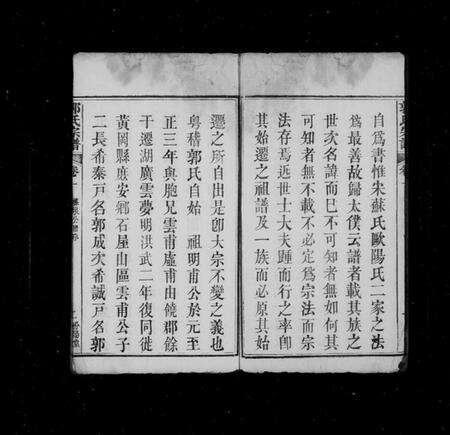 自為書惟宋蘇氏歐陽氏二家之法
為最善故歸太僕云譜者載其族之
世次名諱而巳不可知者無如何其
可知者無不載不必定為宗法而宗
法存焉近世士大夫踵而行之率卽
其始遷之祖譜及一族而必原其始
遷之所自出是卽大宗不變之義也
粵稽郭氏自始 祖明甫公於元至
正三年與胞兄雲甫虛甫由饒郡餘
干遷湖廣雲夢明洪武二年復同徙
黃岡縣庶安鄉石屋山區雲甫公子
二長希秦戸名郭成次希誠戸名郭
郭氏宗譜
卷一